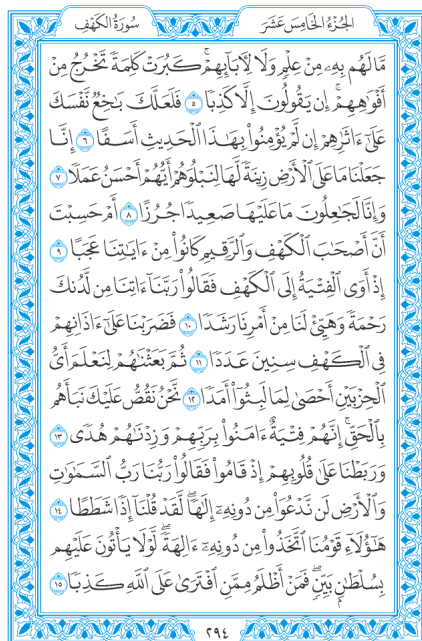 سُورَةُ الكَهْفِ الجُزْءُ الخَامِسَ عَشَرَ
مَّا لَهُم بِهِۦ مِنْ عِلْمٍ وَلَا لِأٓبَآئِهِمْۚ كَبُرَتْ كَلِمَةً تَخْرُجُ مِنْ
أَفْوَٰهِهِمْۚ إِن يَقُولُونَ إِلَّا كَذِبًا ٥ فَلَعَلَّكَ بَٰخِعٌ نَّفْسَكَ
عَلَىٰٓ ءَاثَٰرِهِمْ إِن لَّمْ يُؤْمِنُوا۟ بِهَٰذَا ٱلْحَدِيثِ أَسَفًا ٦ إِنَّا
جَعَلْنَا مَا عَلَى ٱلْأَرْضِ زِينَةً لَّهَا لِنَبْلُوَهُمْ أَيُّهُمْ أَحْسَنُ عَمَلًا ٧
وَإِنَّا لَجَٰعِلُونَ مَا عَلَيْهَا صَعِيدًا جُرُزًا ٨ أَمْ حَسِبْتَ
أَنَّ أَصْحَٰبَ ٱلْكَهْفِ وَٱلرَّقِيمِ كَانُوا۟ مِنْ ءَايَٰتِنَا عَجَبًا ٩
إِذْ أَوَى ٱلْفِتْيَةُ إِلَى ٱلْكَهْفِ فَقَالُوا۟ رَبَّنَآ ءَاتِنَا مِن لَّدُنكَ
رَحْمَةً وَهَيِّئْ لَنَا مِنْ أَمْرِنَا رَشَدًا ١٠ فَضَرَبْنَا عَلَىٰٓ ءَاذَانِهِمْ
فِى ٱلْكَهْفِ سِنِينَ عَدَدًا ١١ ثُمَّ بَعَثْنَٰهُمْ لِنَعْلَمَ أَىُّ
ٱلْحِزْبَيْنِ أَحْصَىٰ لِمَا لَبِثُوٓا۟ أَمَدًا ١٢ نَّحْنُ نَقُصُّ عَلَيْكَ نَبَأَهُم
بِٱلْحَقِّۚ إِنَّهُمْ فِتْيَةٌ ءَامَنُوا۟ بِرَبِّهِمْ وَزِدْنَٰهُمْ هُدًى ١٣
وَرَبَطْنَا عَلَىٰ قُلُوبِهِمْ إِذْ قَامُوا۟ فَقَالُوا۟ رَبُّنَا رَبُّ ٱلسَّمَٰوَٰتِ
وَٱلْأَرْضِ لَن نَّدْعُوَا۟ مِن دُونِهِۦٓ إِلَٰهًاۖ لَّقَدْ قُلْنَآ إِذًا شَطَطًا ١٤
هَٰٓؤُلَآءِ قَوْمُنَا ٱتَّخَذُوا۟ مِن دُونِهِۦٓ ءَالِهَةًۖ لَّوْلَا يَأْتُونَ عَلَيْهِم
بِسُلْطَٰنٍۭ بَيِّنٍۖ فَمَنْ أَظْلَمُ مِمَّنِ ٱفْتَرَىٰ عَلَى ٱللَّهِ كَذِبًا ١٥
٢٩٤